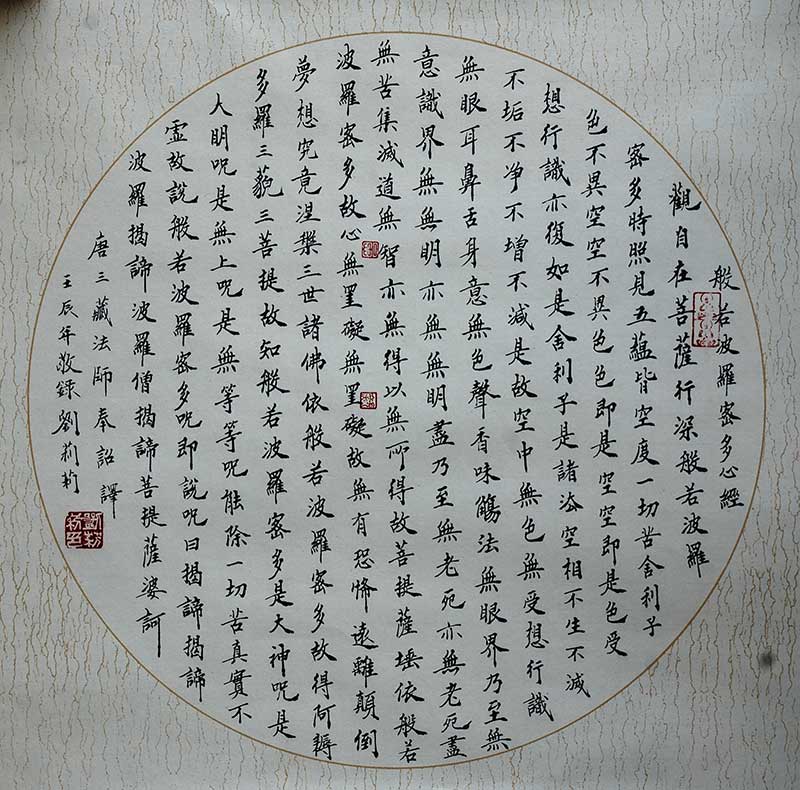 般若波羅密多心經
觀自在菩薩行深般若波羅
密多時照見五蘊皆空度一切苦舍利子
色不異空空不異色色即是空空即是色受
想行識亦復如是舍利子是諸法空相不生不滅
不垢不净不增不減是故空中無色無受想行識
無眼耳鼻舌身意無色聲香味觸法無眼界乃至無
意識界無無明亦無無明盡乃至無老死亦無老死盡
無苦集滅道無智亦無得以無所得故菩提薩埵依般若
波羅密多故心無罣礙無罣礙故無有恐怖遠離顛倒
夢想究竟涅槃三世諸佛依般若波羅密多故得阿耨
多羅三藐三菩提故知般若波羅密多是大神呪是
大明呪是無上呪是無等等呪能除一切苦真實不
虛故說般若波羅密多呪即說呪曰揭諦揭諦
波羅揭諦波羅僧揭諦菩提薩婆訶
唐三藏法師奉詔譯
壬辰年敬録劉莉莉